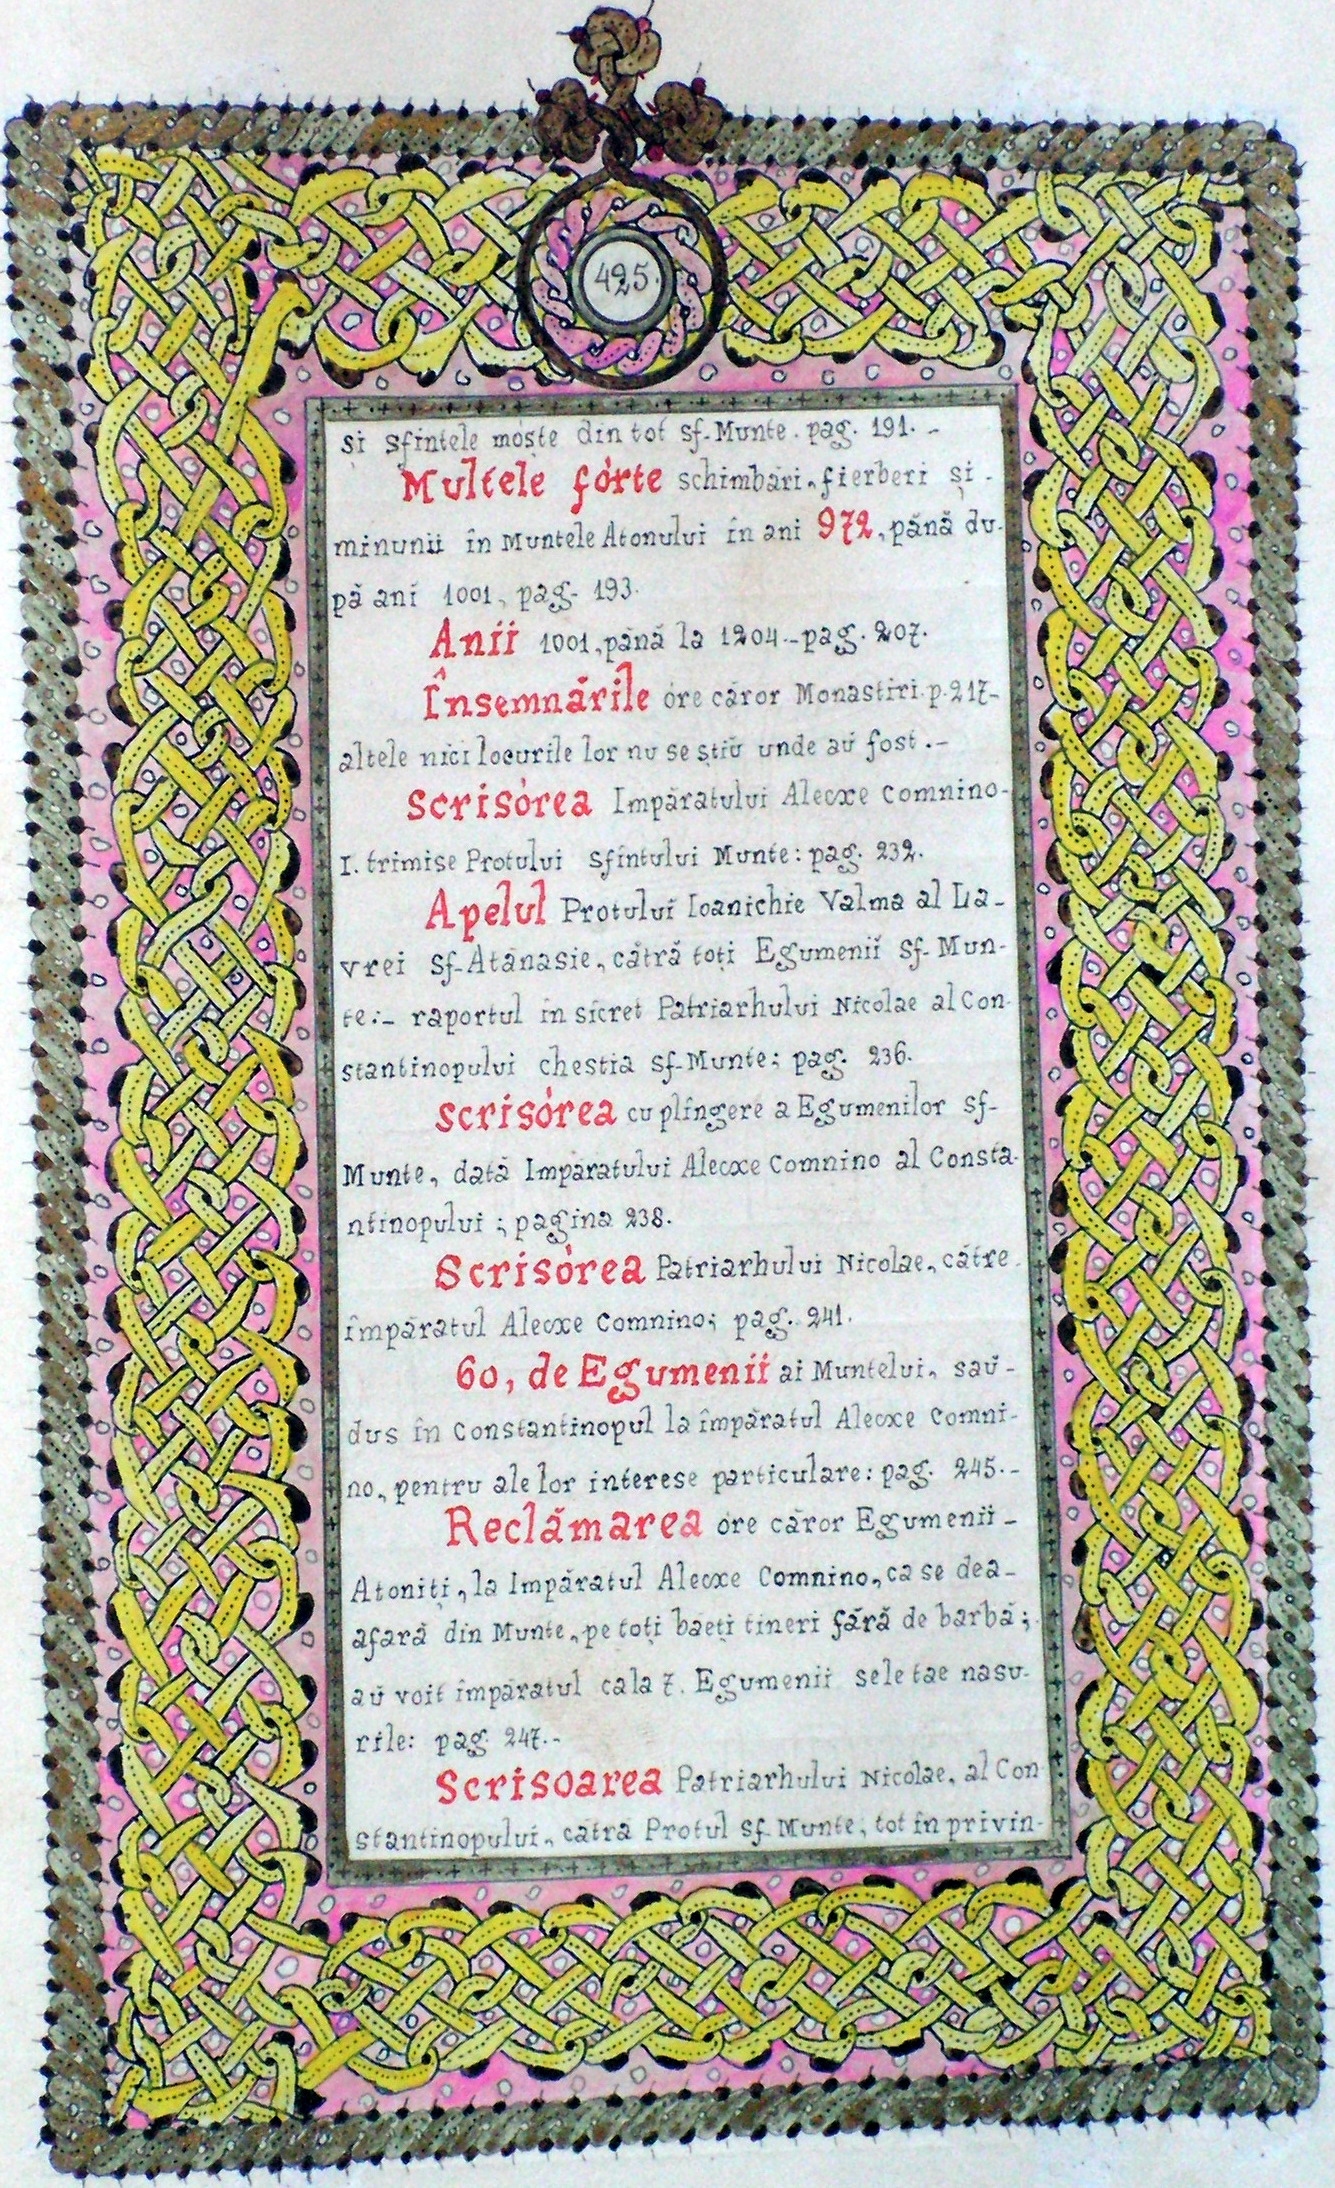 425.
și sfintele moște din tot sf. Munte. pag. 191. -
Multele fórte schimbări, fierberi și -
minunii în Muntele Atonului în ani 972, până du-
pă ani 1001, pag. 193.
Anii 1001, până la 1204 - pag. 207.
Însemnările óre căror Monastiri p. 217-
altele nici locurile lor nu se știŭ unde aŭ fost .-
Scrisórea Impăratului Alecxe Comnino-
I. trimise Protului Sfintului Munte: pag. 232.
Apelul Protului Ioanichie Valma al La-
vrei sf. Atanasie, cătră toți Egumenii Sf. Mun-
te:- raportul în sicret Patriarhului Nicolae al Con-
stantinopului chestia sf. Munte; pag. 236.
Scrisórea cu plîngere a Egumenilor sf-
Munte, dată Impăratului Alecxe Comnino al Consta-
ntinopului ; pagina 238.
Scrisórea Patriarhului Nicolae, către
împăratul Alecxe Comnino; pag. 241.
60, de Egumenii ai Muntelui, saŭ-
dus în Constantinopul la împăratul Alecxe Comni-
no, pentru ale lor interese particulare: pag. 245.-
Reclămarea óre căror Egumenii -
Atoniți, la Impăratul Alecxe Comnino, ca se dea-
afară din Munte, pe toți baeți tineri fără de barbă;
aŭ voit împăratul ca la 7. Egumenii sele tae nasu-
rile: pag. 247.-
Scrisoarea Patriarhului Nicolae, al Con
stantinopului, cătră Protul sf. Munte, tot în privin-